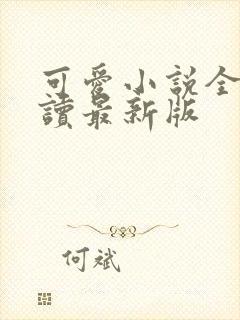 可愛小說全
讀最新版
何斌